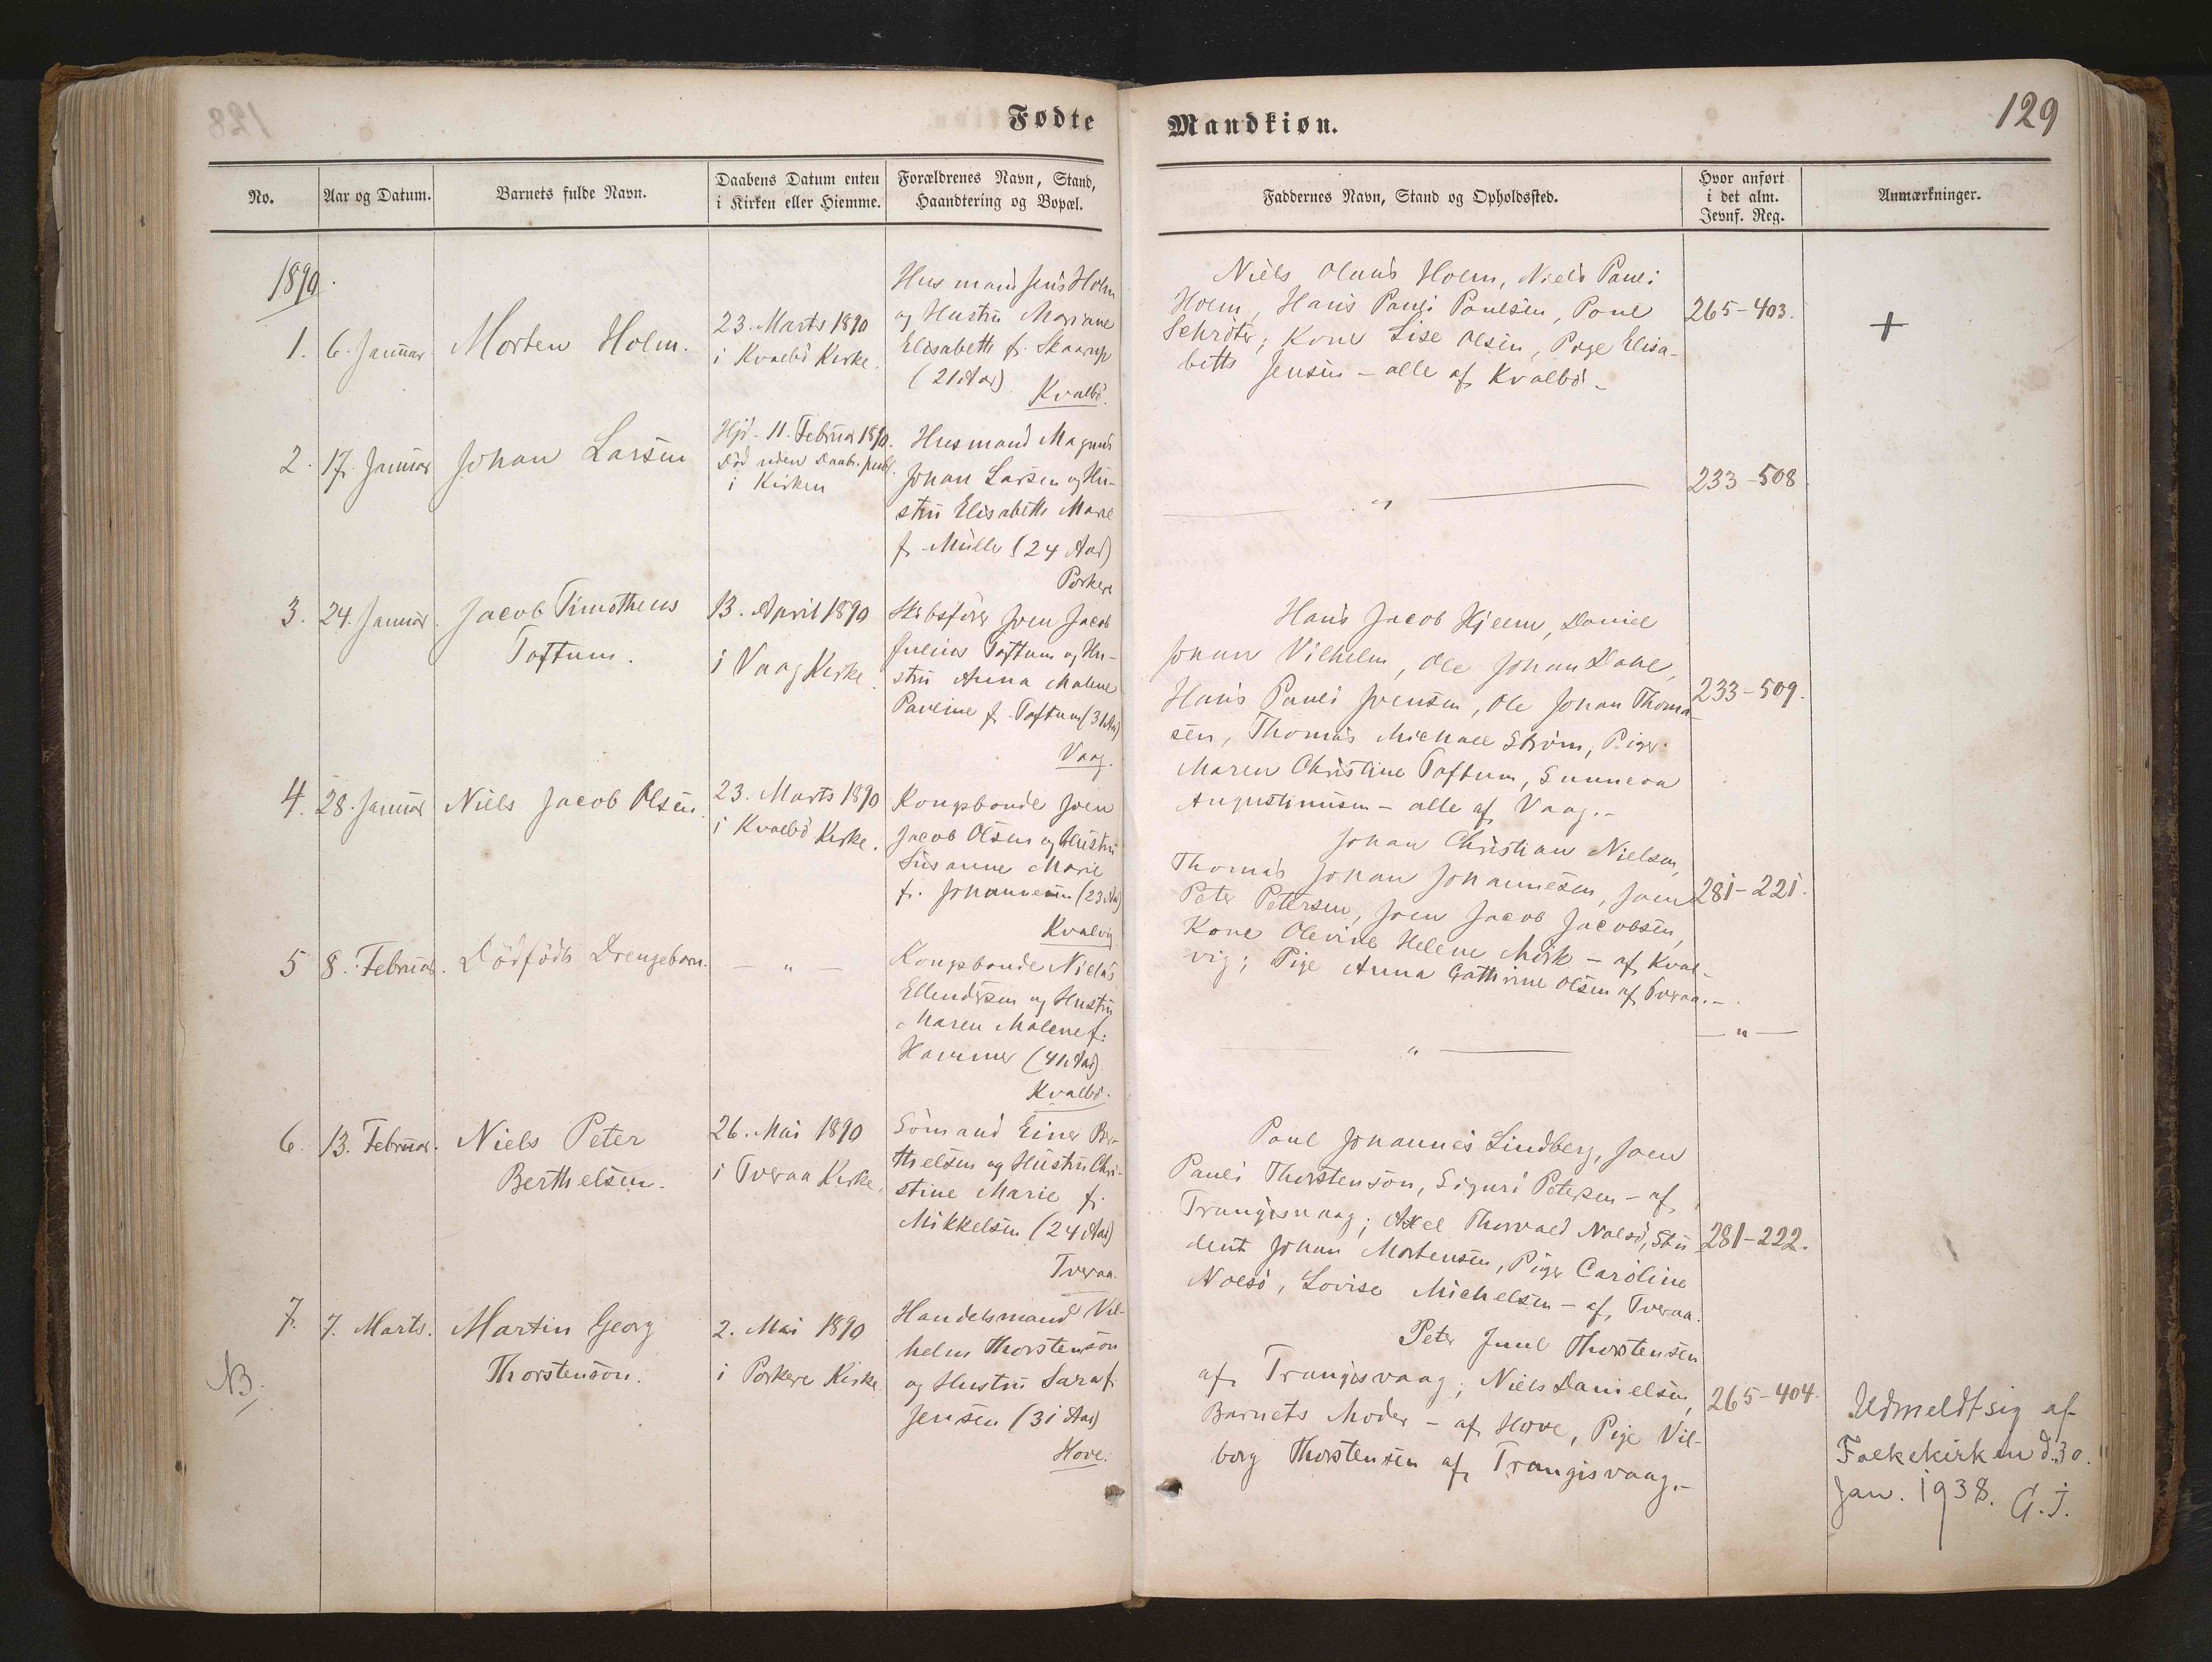 Fødte
No.
Aar og Datum.
Barnets fulde Navn.
Daabens Datum enten
i Kirken eller Hiemme.
Forældrenes Navn, Stand,
Haandtering og Bopæl.
1890.
1.
6. Januar
Morten Holm.
23. Marts 1890
i Kvalbö Kirke.
Husmand Jens Holm
og Hustru Mariane
Elisabeth f. Skaarup
(21 Aar)
Kvalbö.
2.
17. Januar
Johan Larsen
Hjd. 11. Februar 1890.
Död uden Daabs. publ.
i Kirken
Husmand Magnus
Johan Larsen og Hu-
stru Elisabeth Marie
f. Müller (24 Aar)
Porkere
3.
24. Januar.
Jacob Timotheus
Toftum.
13. April 1890
i Vaag Kirke.
Skibsförer Joen Jacob
Julius Toftum og Hu-
stru Anna Malene
Pauline f. Toftum (31 Aar)
Vaag.
4.
28. Januar
Niels Jacob Olsen.
23. Marts 1890
i Kvalbö Kirke.
Kongsbonde Joen
Jacob Olsen og Hustru
Susanne Marie
f. Johannesen (23 Aar)
Kvalvig
5
8. Februar.
Dödfödt Drengebarn.
— " —
Kongsbonde Niclas
Ellendersen og Hustru
Maren Malene f.
Hammer (41 Aar)
Kvalbö.
6.
13. Februar.
Niels Peter
Berthelsen.
26. Mai 1890
i Tveraa Kirke.
Sömand Einer Ber-
thelsen og Hustru Chri-
stine Marie f.
Mikkelsen (24 Aar)
Tveraa.
7.
7. Marts.
Martin Georg
Thorstenson.
2. Mai 1890
i Porkere Kirke.
Handelsmand Vil-
helm Thorstenson
og Hustru Sara f.
Jensen (31 Aar)
Hove.
NB.
Mandkiøn.
129
Faddernes Navn, Stand og Opholdssted.
Hvor anført
i det alm.
Jevnf. Reg.
Anmærkninger.
Niels Olaus Holm, Niels Pauli
Holm, Hans Pauli Poulsen, Poul
Schröter; Kone Lise Olsen, Pige Elisa-
beth Jensen – alle af Kvalbö –
265–403.
+
— " —
233–508
Hans Jacob Hjelm, Daniel
Johan Vilhelm, Ole Johan Dahl,
Hans Pauli Joensen, Ole Johan Thoma-
sen, Thomas Michael Ström, Piger
Maren Christine Toftum, Sunneva
Augustinusen – alle af Vaag.–
233–509.
Johan Christian Nielsen,
Thomas Johan Johannesen, Joen
Peter Petersen, Joen Jacob Jacobsen,
Kone Olevine Helene Mörk – af Kval-
vig; Pige Anna Cathrine Olsen af Tveraa.–
281–221.
— " —
— " —
Poul Johannes Lindberg, Joen
Pauli Thorstenson, Sigurd Petersen – af
Trangisvaag; Axel Thorvald Nolsö, Stu-
dent Johan Mortensen, Piger Caroline
Nolsö, Lovise Michelsen – af Tveraa.
281–222.
Peter Juul Thorstensen
af Trangisvaag; Niels Danielsen,
Barnets Moder – af Hove, Pige Vil-
borg Thorstensen af Trangisvaag.–
265–404.
Udmeldt sig af
Folkekirken d. 30.
Jan. 1938. G.J.